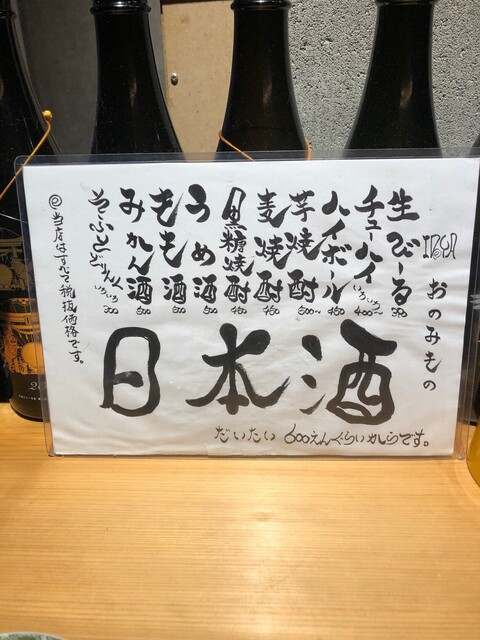 おのみもの
生びーる 390
チューハイ いろいろ 400〜
ハイボール 450
芋焼酎 500〜
麦焼酎 450
黒糖焼酎 450
うめ酒 500
もも酒 500
みかん酒 500
そふとどりんく いろいろ 300
@当店はすべて税抜価格です。
日本酒
だいたい600えんぐらいからです。